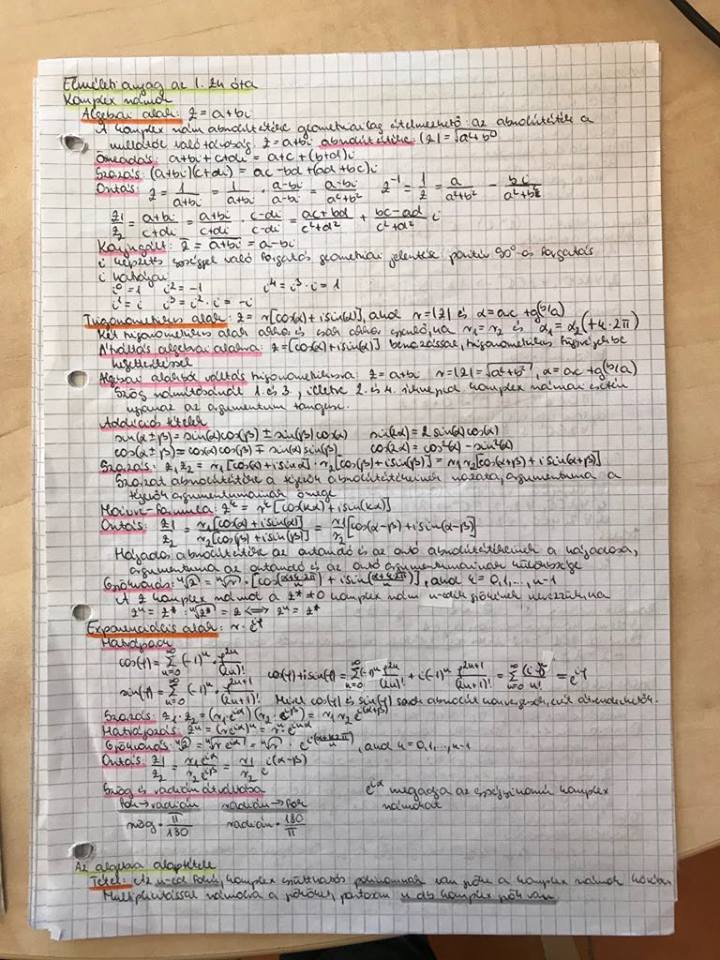 Elméleti anyag az 1. zh óta
Komplex számok
Algebrai alak: z = a+bi
A komplex szám abszolútértéke geometriailag értelmezhető: az abszolútérték a
nullától való távolság. z = a+bi abszolútértéke: |z| = √a²+b²
Összeadás: a+bi + c+di = a+c + (b+d)i
Szorzás: (a+bi)(c+di) = ac - bd + (ad+bc)i
Osztás: z = 1/(a+bi) = 1/(a+bi) · (a-bi)/(a-bi) = (a-bi)/(a²+b²) z⁻¹ = 1/z = a/(a²+b²) - bi/(a²+b²)
z₁/z₂ = (a+bi)/(c+di) = (a+bi)/(c+di) · (c-di)/(c-di) = (ac+bd)/(c²+d²) + (bc-ad)/(c²+d²) i
Konjugált: z̄ = a+bi = a-bi
i képzetes egységgel való forgatás geometriai jelentése pozitív 90°-os forgatás
i hatványai:
i⁰ = 1 i² = -1 i⁴ = i³·i = 1
i¹ = i i³ = i²·i = -i
Trigonometrikus alak: z = r[cos(α) + i sin(α)], ahol r = |z| és α = arc tg(b/a)
Két trigonometrikus alak akkor és csak akkor egyenlő, ha r₁ = r₂ és α₁ = α₂ (+k·2π)
Átváltás algebrai alakra: z = [cos(α) + i sin(α)] beszorzással, trigonometrikus függvényekbe
helyettesítéssel
Algebrai alakból váltás trigonometrikusra: z = a+bi r = |z| = √a²+b², α = arc tg(b/a)
Szög számításánál 1. és 3., illetve 2. és 4. síknegyed komplex számai esetén
ugyanaz az argumentum tangense.
Addíciós tételek
sin(α±β) = sin(α)cos(β) ± sin(β)cos(α) sin(2α) = 2 sin(α)cos(α)
cos(α±β) = cos(α)cos(β) ∓ sin(α)sin(β) cos(2α) = cos²(α) - sin²(α)
Szorzás: z₁z₂ = r₁[cos(α) + i sinα] · r₂[cos(β) + i sin(β)] = r₁r₂[cos(α+β) + i sin(α+β)]
Szorzat abszolútértéke a tényezők abszolútértékeinek szorzata, argumentuma a
tényezők argumentumainak összege
Moivre-formula: zⁿ = rⁿ[cos(nα) + i sin(nα)]
Osztás: z₁/z₂ = r₁[cos(α) + i sin(α)]/r₂[cos(β) + i sin(β)] = r₁/r₂ [cos(α-β) + i sin(α-β)]
Hányados abszolútértéke az osztandó és az osztó abszolútértékeinek a hányadosa,
argumentuma az osztandó és az osztó argumentumainak különbsége
Gyökvonás: ⁿ√z = ⁿ√r · [cos((α+k·2π)/n) + i sin((α+k·2π)/n)], ahol k = 0,1,...,n-1
A z komplex számot a z* ≠ 0 komplex szám n-edik gyökének nevezzük, ha
zⁿ = z* : ⁿ√z* = z ⟺ zⁿ = z*
Exponenciális alak: r·e^iφ
Hatványsor
cos(φ) = ∞Σn=0 (-1)ⁿ · φ²ⁿ/(2n)! cos(φ) + i sin(φ) = ∞Σn=0 (-1)ⁿ φ²ⁿ/(2n)! + i·(-1)ⁿ φ²ⁿ⁺¹/(2n+1)! = ∞Σn=0 (iφ)ⁿ/n! = e^iφ
sin(φ) = ∞Σn=0 (-1)ⁿ · φ²ⁿ⁺¹/(2n+1)! Mivel cos(φ) és sin(φ) sorok abszolút konvergensek, ezért átrendezhetők.
Szorzás: z₁·z₂ = (r₁·e^iα)(r₂·e^iβ) = r₁·r₂ e^i(α+β)
Hatványozás: zⁿ = (r e^iα)ⁿ = rⁿ·e^inα
Gyökvonás: ⁿ√z = ⁿ√r e^iα = ⁿ√r · e^i((α+k·2π)/n), ahol k = 0,1,...,n-1
Osztás: z₁/z₂ = r₁e^iα/r₂e^iβ = r₁/r₂ e^i(α-β)
Szög és radián átváltása e^iα megadja az egységnyi komplex
Fok→radián radián→Fok számokat
szög · π/180 radián · 180/π
Az algebra alaptétele
Tétel: Az n-ed fokú, komplex együtthatós polinomnak van gyöke a komplex számok körében.
Multiplicitással számolva a gyököket, pontosan n db komplex gyök van.